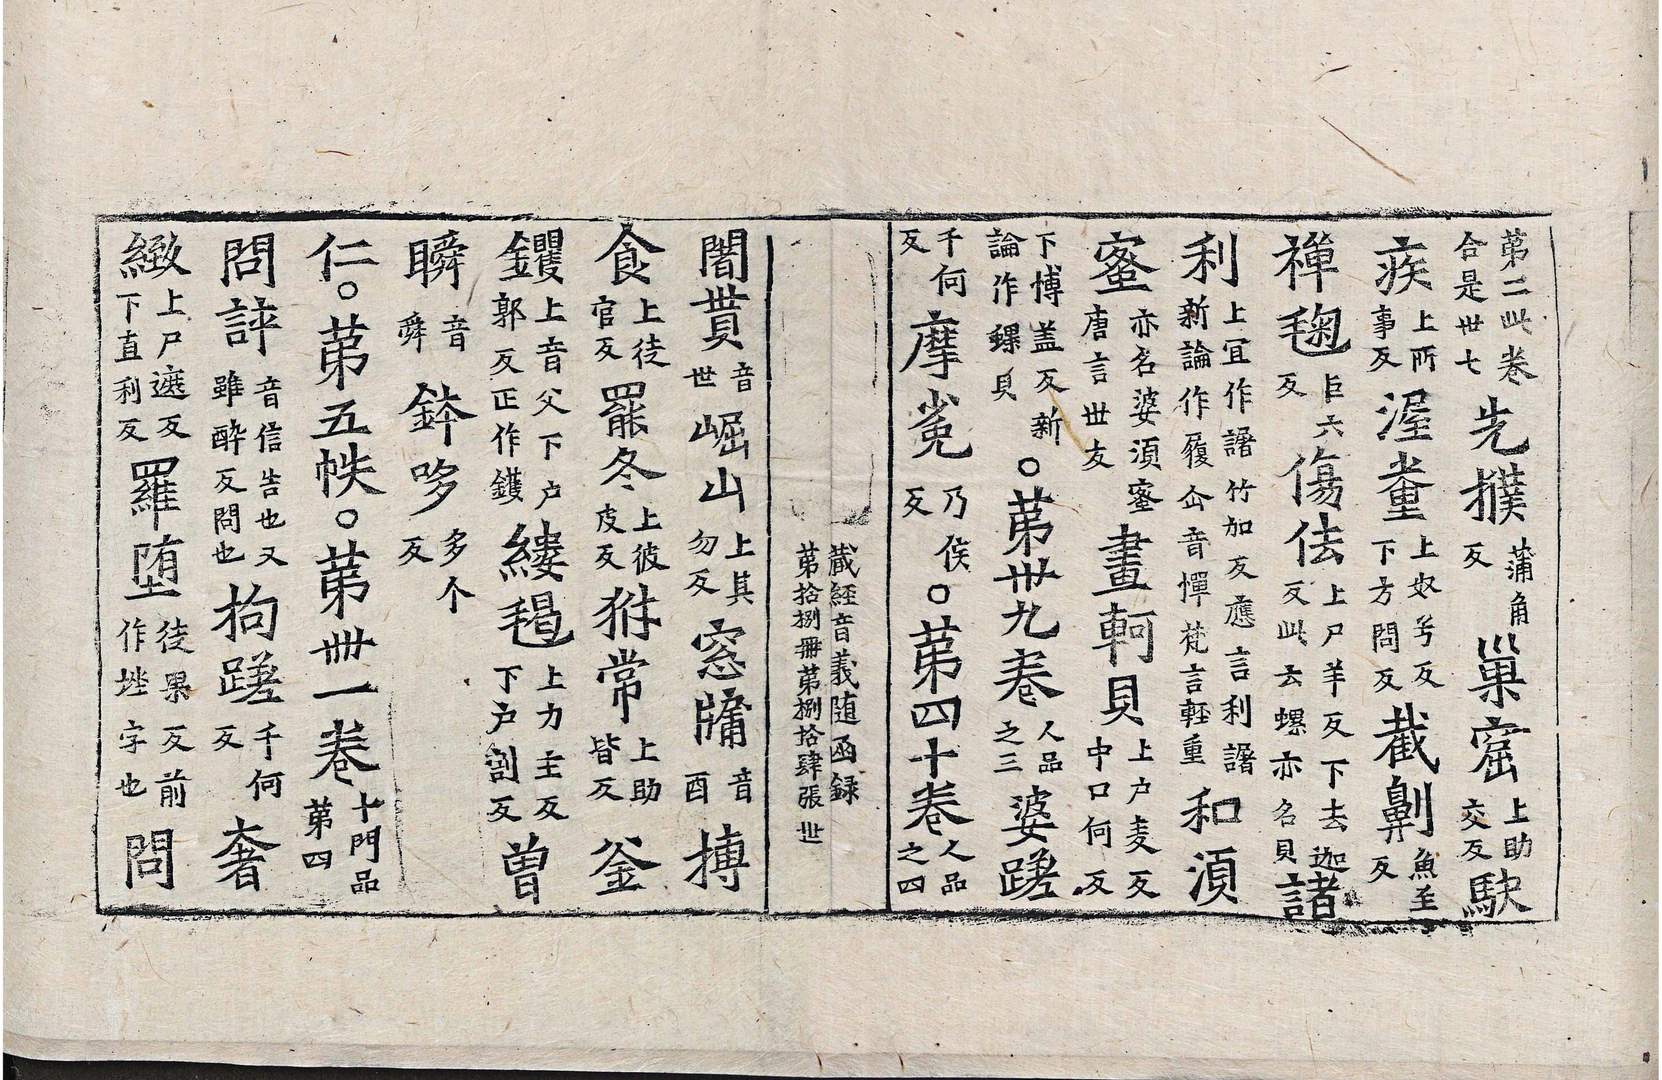 第二此卷合是卅七先撲蒲角反巢窟上助交反駃
疾上所事反渥𡊅上奴兮反下方問反截劓魚至反
禅毱巨六反傷佉上尸羊反下去迦反此云螺亦名貝諸
利上冝作譇竹加反應言利譇新論作履仚音憚梵言輕重和湏
蜜亦名婆湏蜜唐言世友畫軻貝上户麦反中口何反
下博盖反新論作鏍貝○第卅九卷人品之三婆蹉
千何反摩㝹乃侯反○第四十卷人品之四
蔵経音義随函録
第拾捌冊第捌拾肆張 世
闍貰音世崛山上其勿反窓牗音酉摶
食上徒官反罷冬上彼皮反犲常上助皆反釜
鑺上音父下户郭反正作鑊縷𣯶上力主反下户割反曽
瞬音舜鉢哆多个反
仁○第五帙○第卌一卷十門品第四
問誶音信告也又雖醉反問也拘蹉千何反奢
緻上尸遮反下直利反羅堕徒果反前作㘸字也問